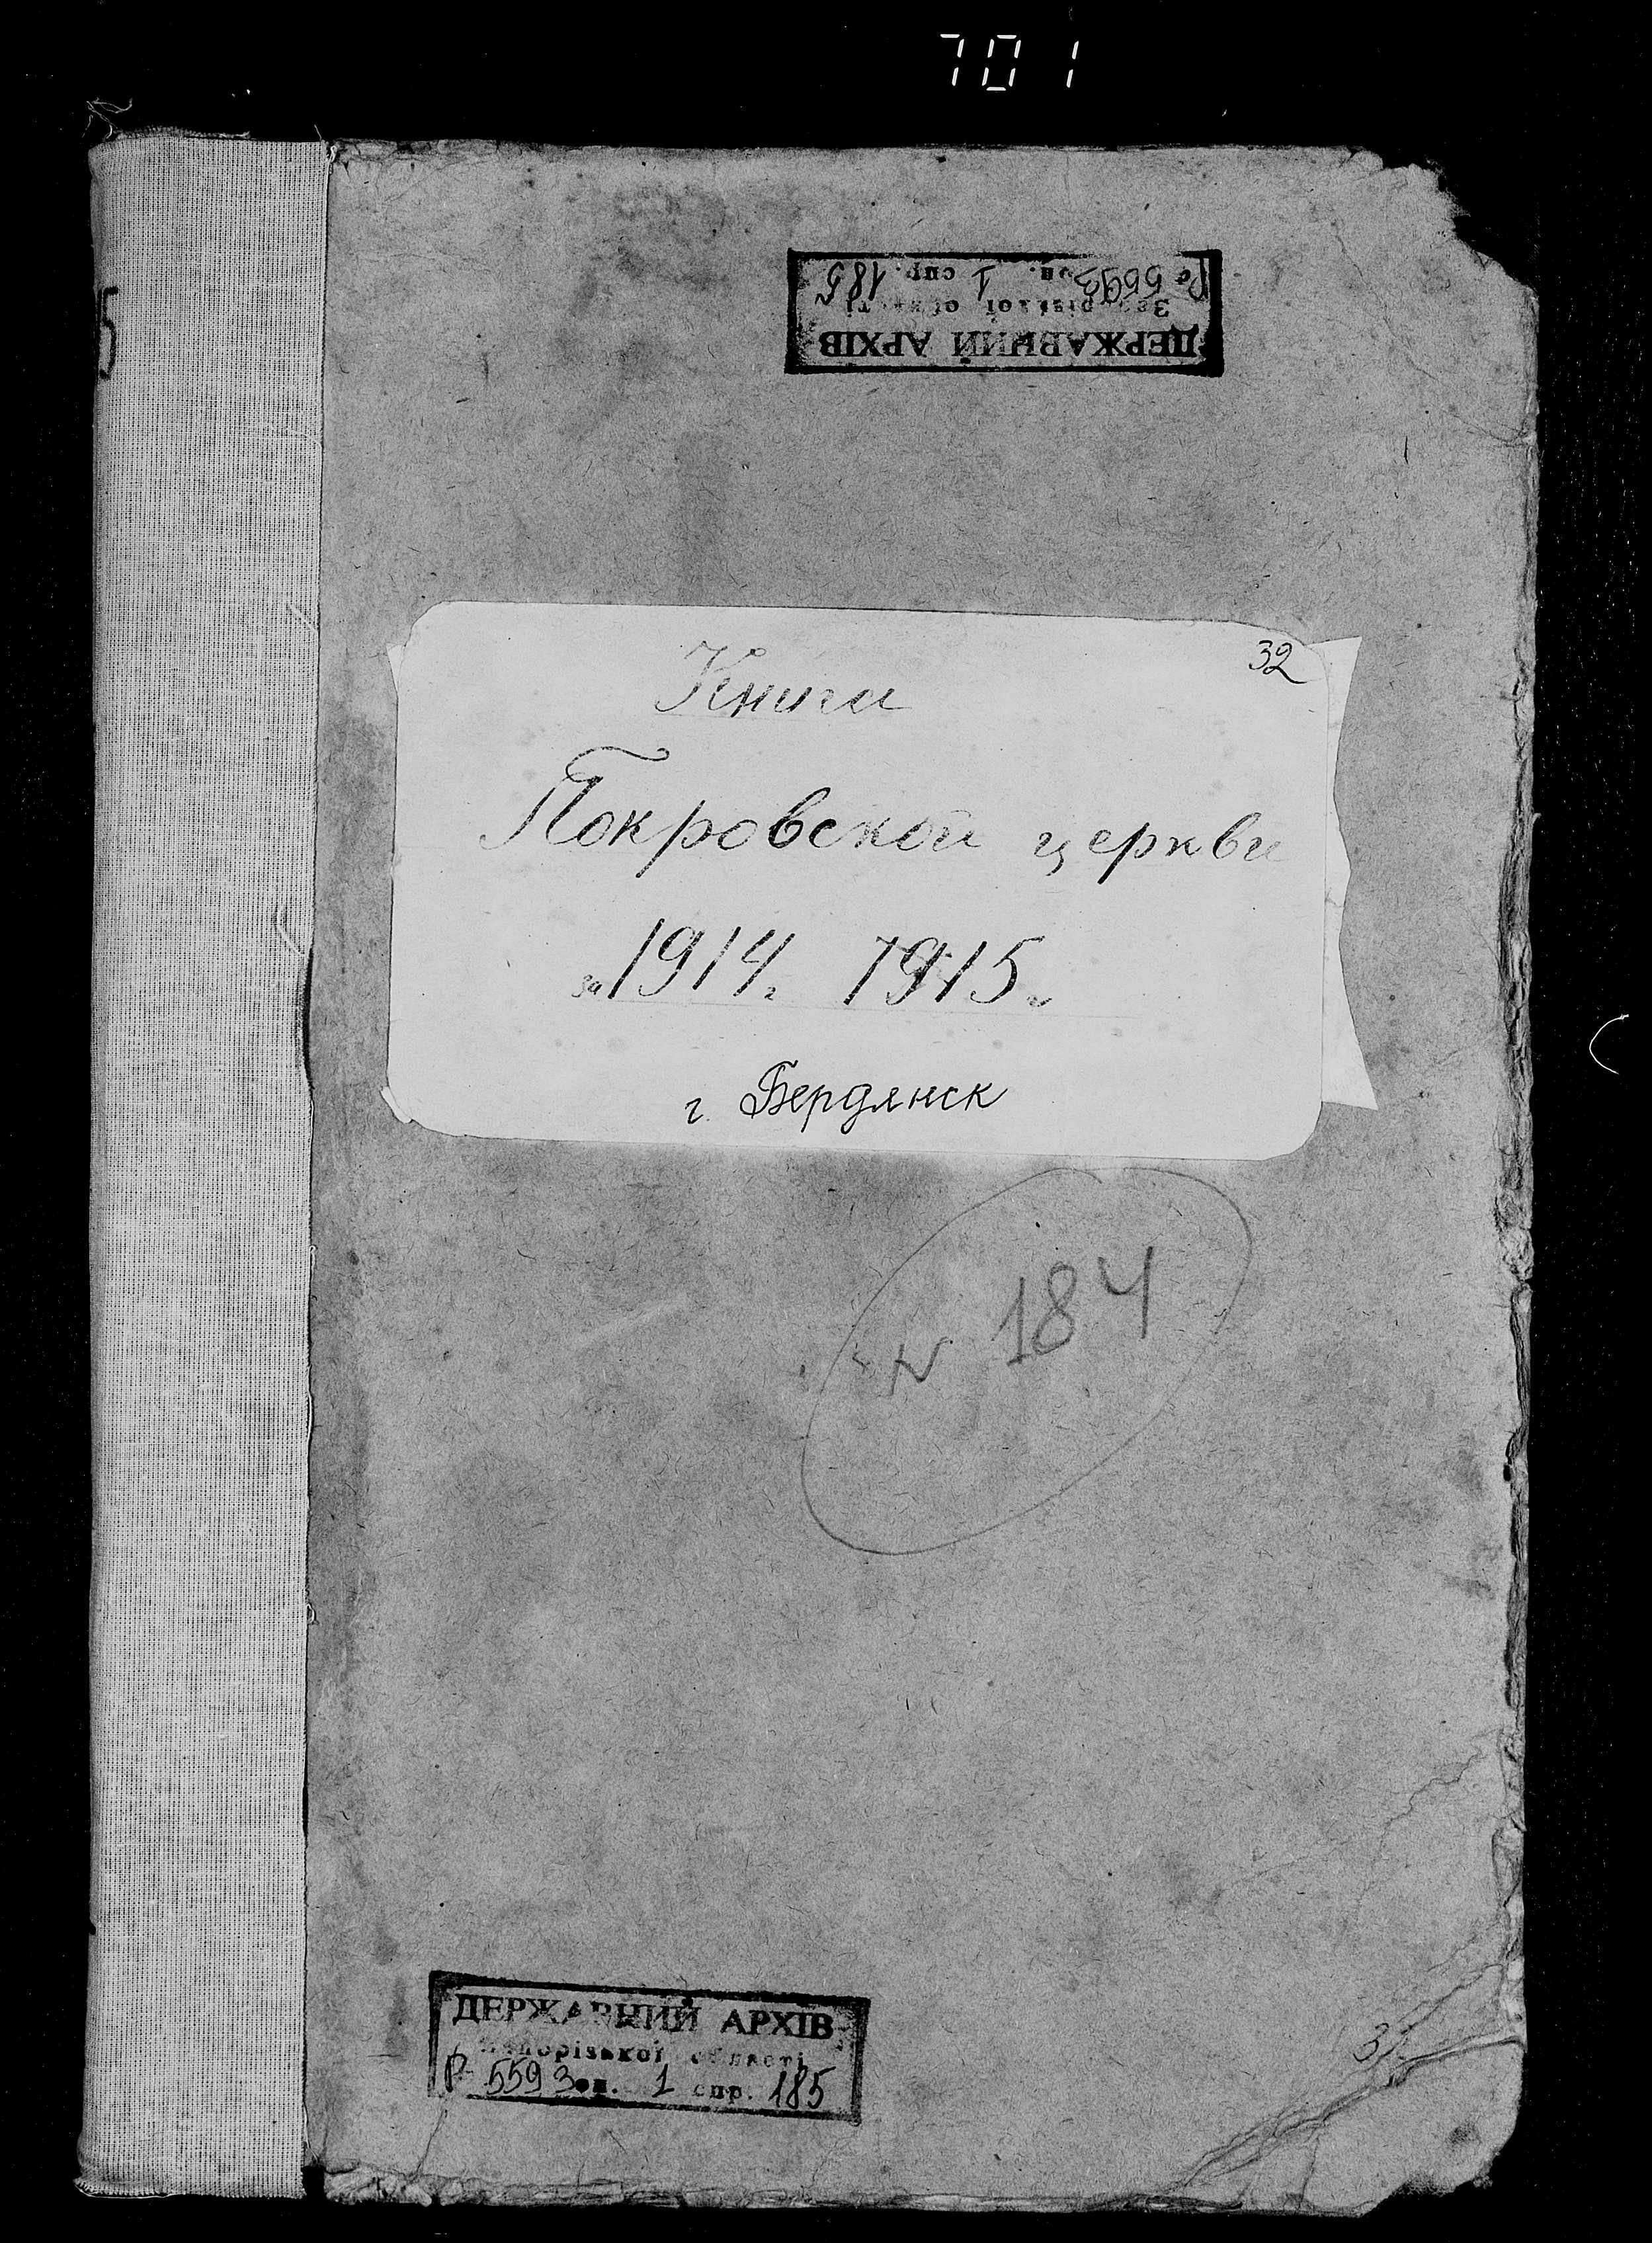 701
Рф 5593 оп. 1 спр. 185
Запорізької області
ДЕРЖАВНИЙ АРХІВ
5
32
Книга
Покровской церкви
за 1914г 1915г
г. Бердянск
N 184
ДЕРЖАВНИЙ АРХІВ
Запорізької області
Р 5593 оп. 1 спр. 185